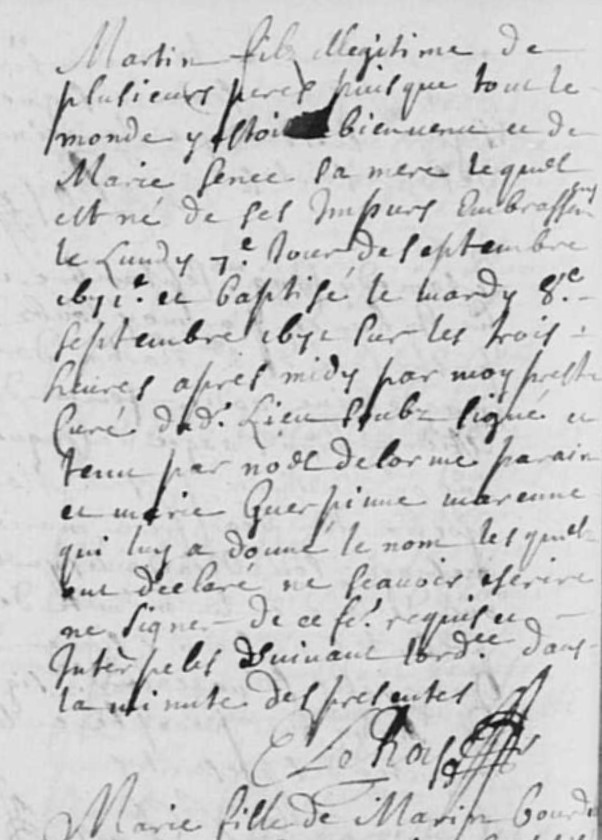 Martin fils Illegitime de
plusieurs peres puisque tout le
monde y estoit bienvenu et de
Marie sa mere lequel
est né de ses Impurs Embrassem
le Lundy 7.e Jour de septembre
et baptisé le mardy 8.e
septembre sur les trois
heures apres midy par moy prestre
Curé dud. Lieu soubz signé et
tenu par noel delorme parain
et marie Guerpinne marenne
qui luy a donné le nom lesquelz
ont declaré ne scavoir escrire
ne signer de ce fe. requis et
Interpeles suivant lord.ce dans
la minute des presentes
Marie fille de Marin